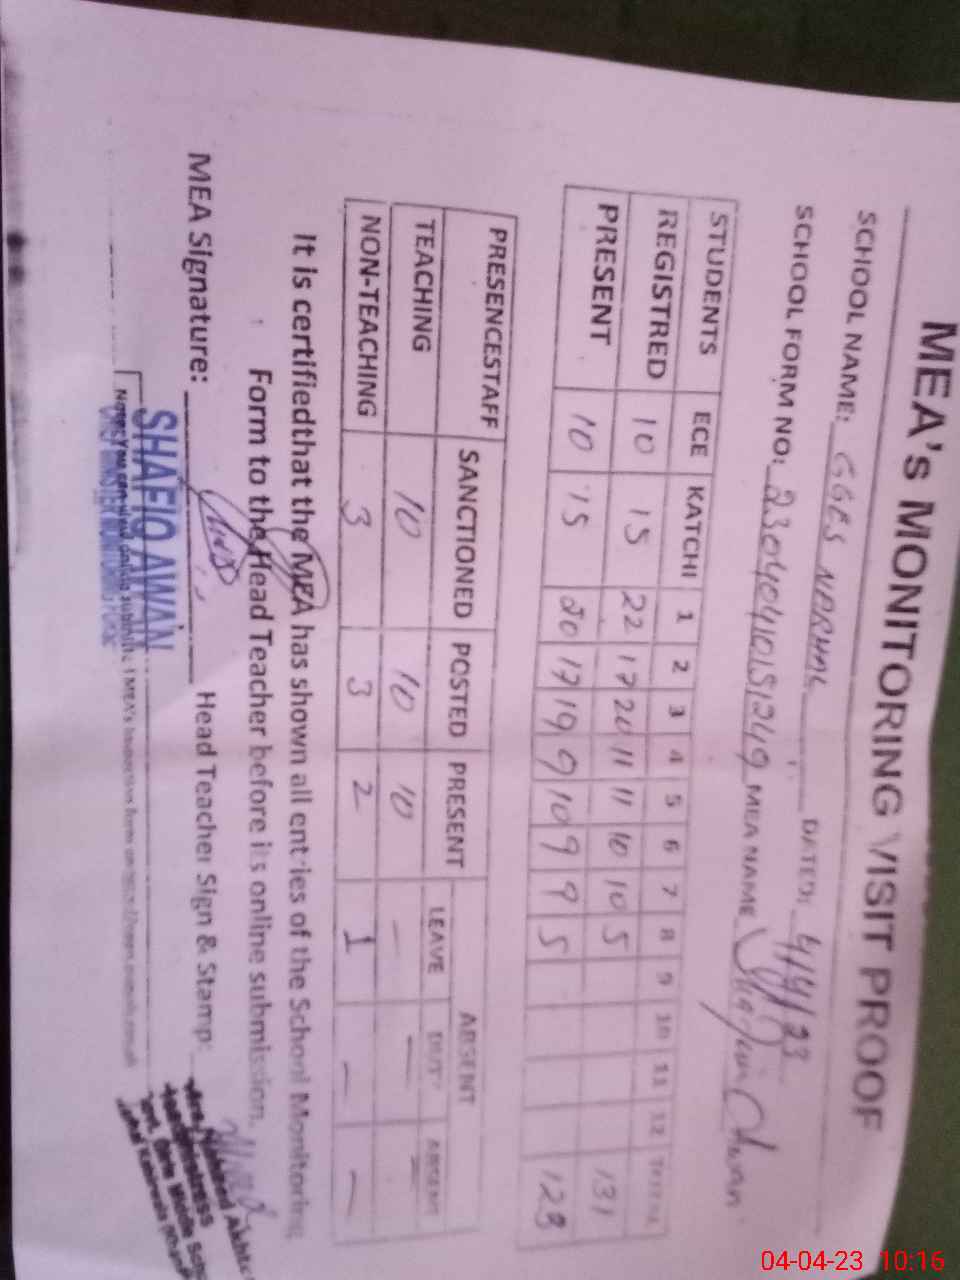 MEA's MONITORING VISIT PROOF
SCHOOL NAME: GGES NARMAL DATED: 4/4/23
SCHOOL FORM NO: MEA NAME Awan
STUDENTS ECE KATCHI 1 2 3 4 5 6 7 8 9 10 11 12 TOTAL
REGISTRED 10 15 22 17 20 11 11 10 10 5 131
PRESENT 10 15 20 17 19 9 10 9 9 5 123
PRESENCESTAFF SANCTIONED POSTED PRESENT ABSENT
LEAVE DUTY ABSENT
TEACHING 10 10 10 — — —
NON-TEACHING 3 3 2 1 — —
It is certifiedthat the MEA has shown all entries of the School Monitoring
Form to the Head Teacher before its online submission.
MEA Signature: Head Teacher Sign & Stamp:
SHAFIQ AWAN
Headmistress
04-04-23 10:16